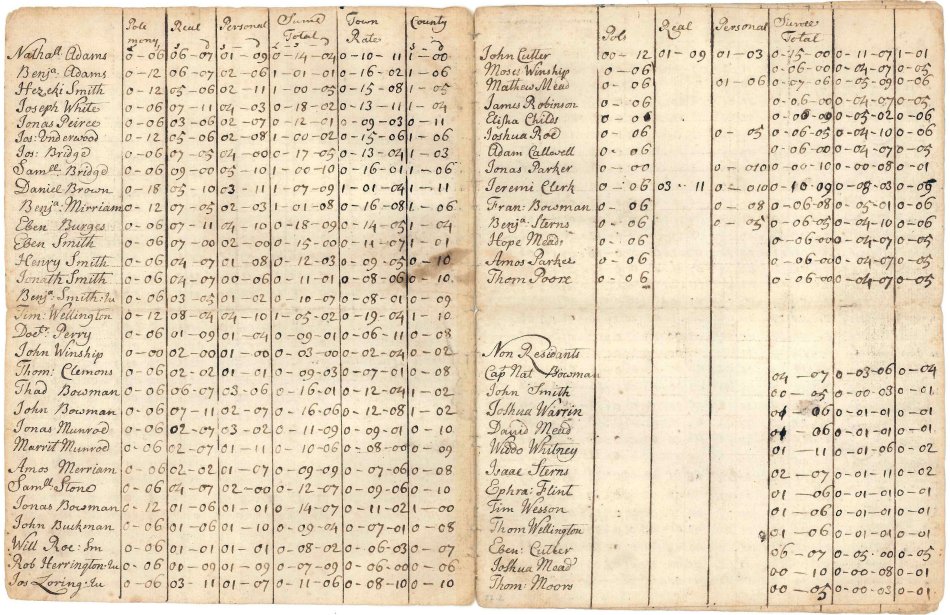 Pole mony Real Personal Sume Total Town Rate County
Nathall Adams 0-06 06-07 01-09 0-14-04 0-10-11 1-00
Benja Adams 0-12 06-07 02-06 1-01-01 0-16-02 1-06
Hezeki Smith 0-12 05-06 02-11 1-00-05 0-15-08 1-05
Joseph White 0-06 07-11 04-03 0-18-02 0-13-11 1-04
Jonas Peirce 0-06 03-06 02-07 0-12-01 0-09-03 0-11
Jos: Underwood 0-12 05-06 02-08 1-00-02 0-15-06 1-06
Jos: Bridge 0-06 07-05 04-00 0-17-05 0-13-04 1-03
Samll Bridge 0-06 09-00 05-10 1-00-10 0-16-01 1-06
Daniel Brown 0-18 05-10 03-11 1-07-09 1-01-04 1-11
Benja: Mirriam 0-12 07-05 02-03 1-01-08 0-16-08 1-06
Eben Burges 0-06 07-11 04-10 0-18-09 0-14-05 1-04
Eben Smith 0-06 07-00 02-00 0-15-00 0-11-07 1-01
Henry Smith 0-06 04-07 01-08 0-12-03 0-09-05 0-10
Jonath Smith 0-06 04-07 00-06 0-11-01 0-08-06 0-10
Benja: Smith: Ju 0-06 03-05 01-02 0-10-07 0-08-01 0-09
Tim: Wellington 0-12 08-04 04-10 1-05-02 0-19-04 1-10
Doctr: Perry 0-06 01-09 01-04 0-09-01 0-06-11 0-08
John Winship 0-00 02-00 01-00 0-03-00 0-02-04 0-02
Thom: Clemons 0-06 02-02 01-01 0-09-03 0-07-01 0-08
Thad Bowman 0-06 06-07 03-06 0-16-01 0-12-04 1-02
John Bowman 0-06 07-11 02-07 0-16-06 0-12-08 1-02
Jonas Munrod 0-06 02-07 03-02 0-11-09 0-09-01 0-10
Marrit Munrod 0-06 02-07 01-11 0-10-06 0-08-00 0-09
Amos Merriam 0-06 02-02 01-07 0-09-09 0-07-06 0-08
Samll Stone 0-06 04-07 02-00 0-12-07 0-09-06 0-10
Jonas Bowman 0-12 01-06 01-01 0-14-07 0-11-02 1-00
John Buckman 0-06 01-06 01-10 0-09-04 0-07-01 0-08
Will Roe: Sm 0-06 01-01 01-01 0-08-02 0-06-03 0-07
Rob Herrington: Ju 0-06 00-09 01-09 0-07-09 0-06-00 0-06
Jos Loring: Ju 0-06 03-11 01-07 0-11-06 0-08-10 0-10
Pols Real Personal Sume Total
John Cutler 00-12 01-09 01-03 0-15-00 0-11-07 1-01
Moses Winship 0-06 0-06-00 0-04-07 0-05
Mathew Mead 0-06 01-06 0-07-06 0-05-09 0-06
James Robinson 0-06 0-06-00 0-04-07 0-05
Elisha Childs 0-06 0-05-02 0-06
Joshua Roe 0-06 0-05 0-06-05 0-04-10 0-06
Adam Callowell 0-06 0-06-00 0-04-07 0-05
Jonas Parker 0-00 0-010 0-00-10 0-00-08 0-01
Jeremi Clerk 0-06 03-11 0-010 0-10-09 0-05-03 0-06
Fran: Bowman 0-06 0-08 0-06-08 0-05-01 0-06
Benja: Sterns 0-06 0-05 0-06-05 0-04-10 0-06
Hope Mead: 0-06 0-06-00 0-04-07 0-05
Amos Parker 0-06 0-06-00 0-04-07 0-05
Thom Poore 0-06 0-06-00 0-04-07 0-05
Non Residants
Capt Nat Bowman 04-07 0-03-06 0-04
John Smith 00-05 0-00-03 0-01
Joshua Warrin 01-06 0-01-01 0-01
David Mead 01-06 0-01-01 0-01
Widdo Whitney 01-11 0-01-06 0-02
Isaac Sterns 02-07 0-01-11 0-02
Ephra: Flint 01-06 0-01-01 0-01
Tim Wesson 01-06 0-01-01 0-01
Thom Wellington 01-06 0-01-01 0-01
Eben: Cutler 06-07 0-05-00 0-05
Joshua Mead 00-10 0-00-08 0-01
Thom: Moors 00-05 0-00-03 0-01